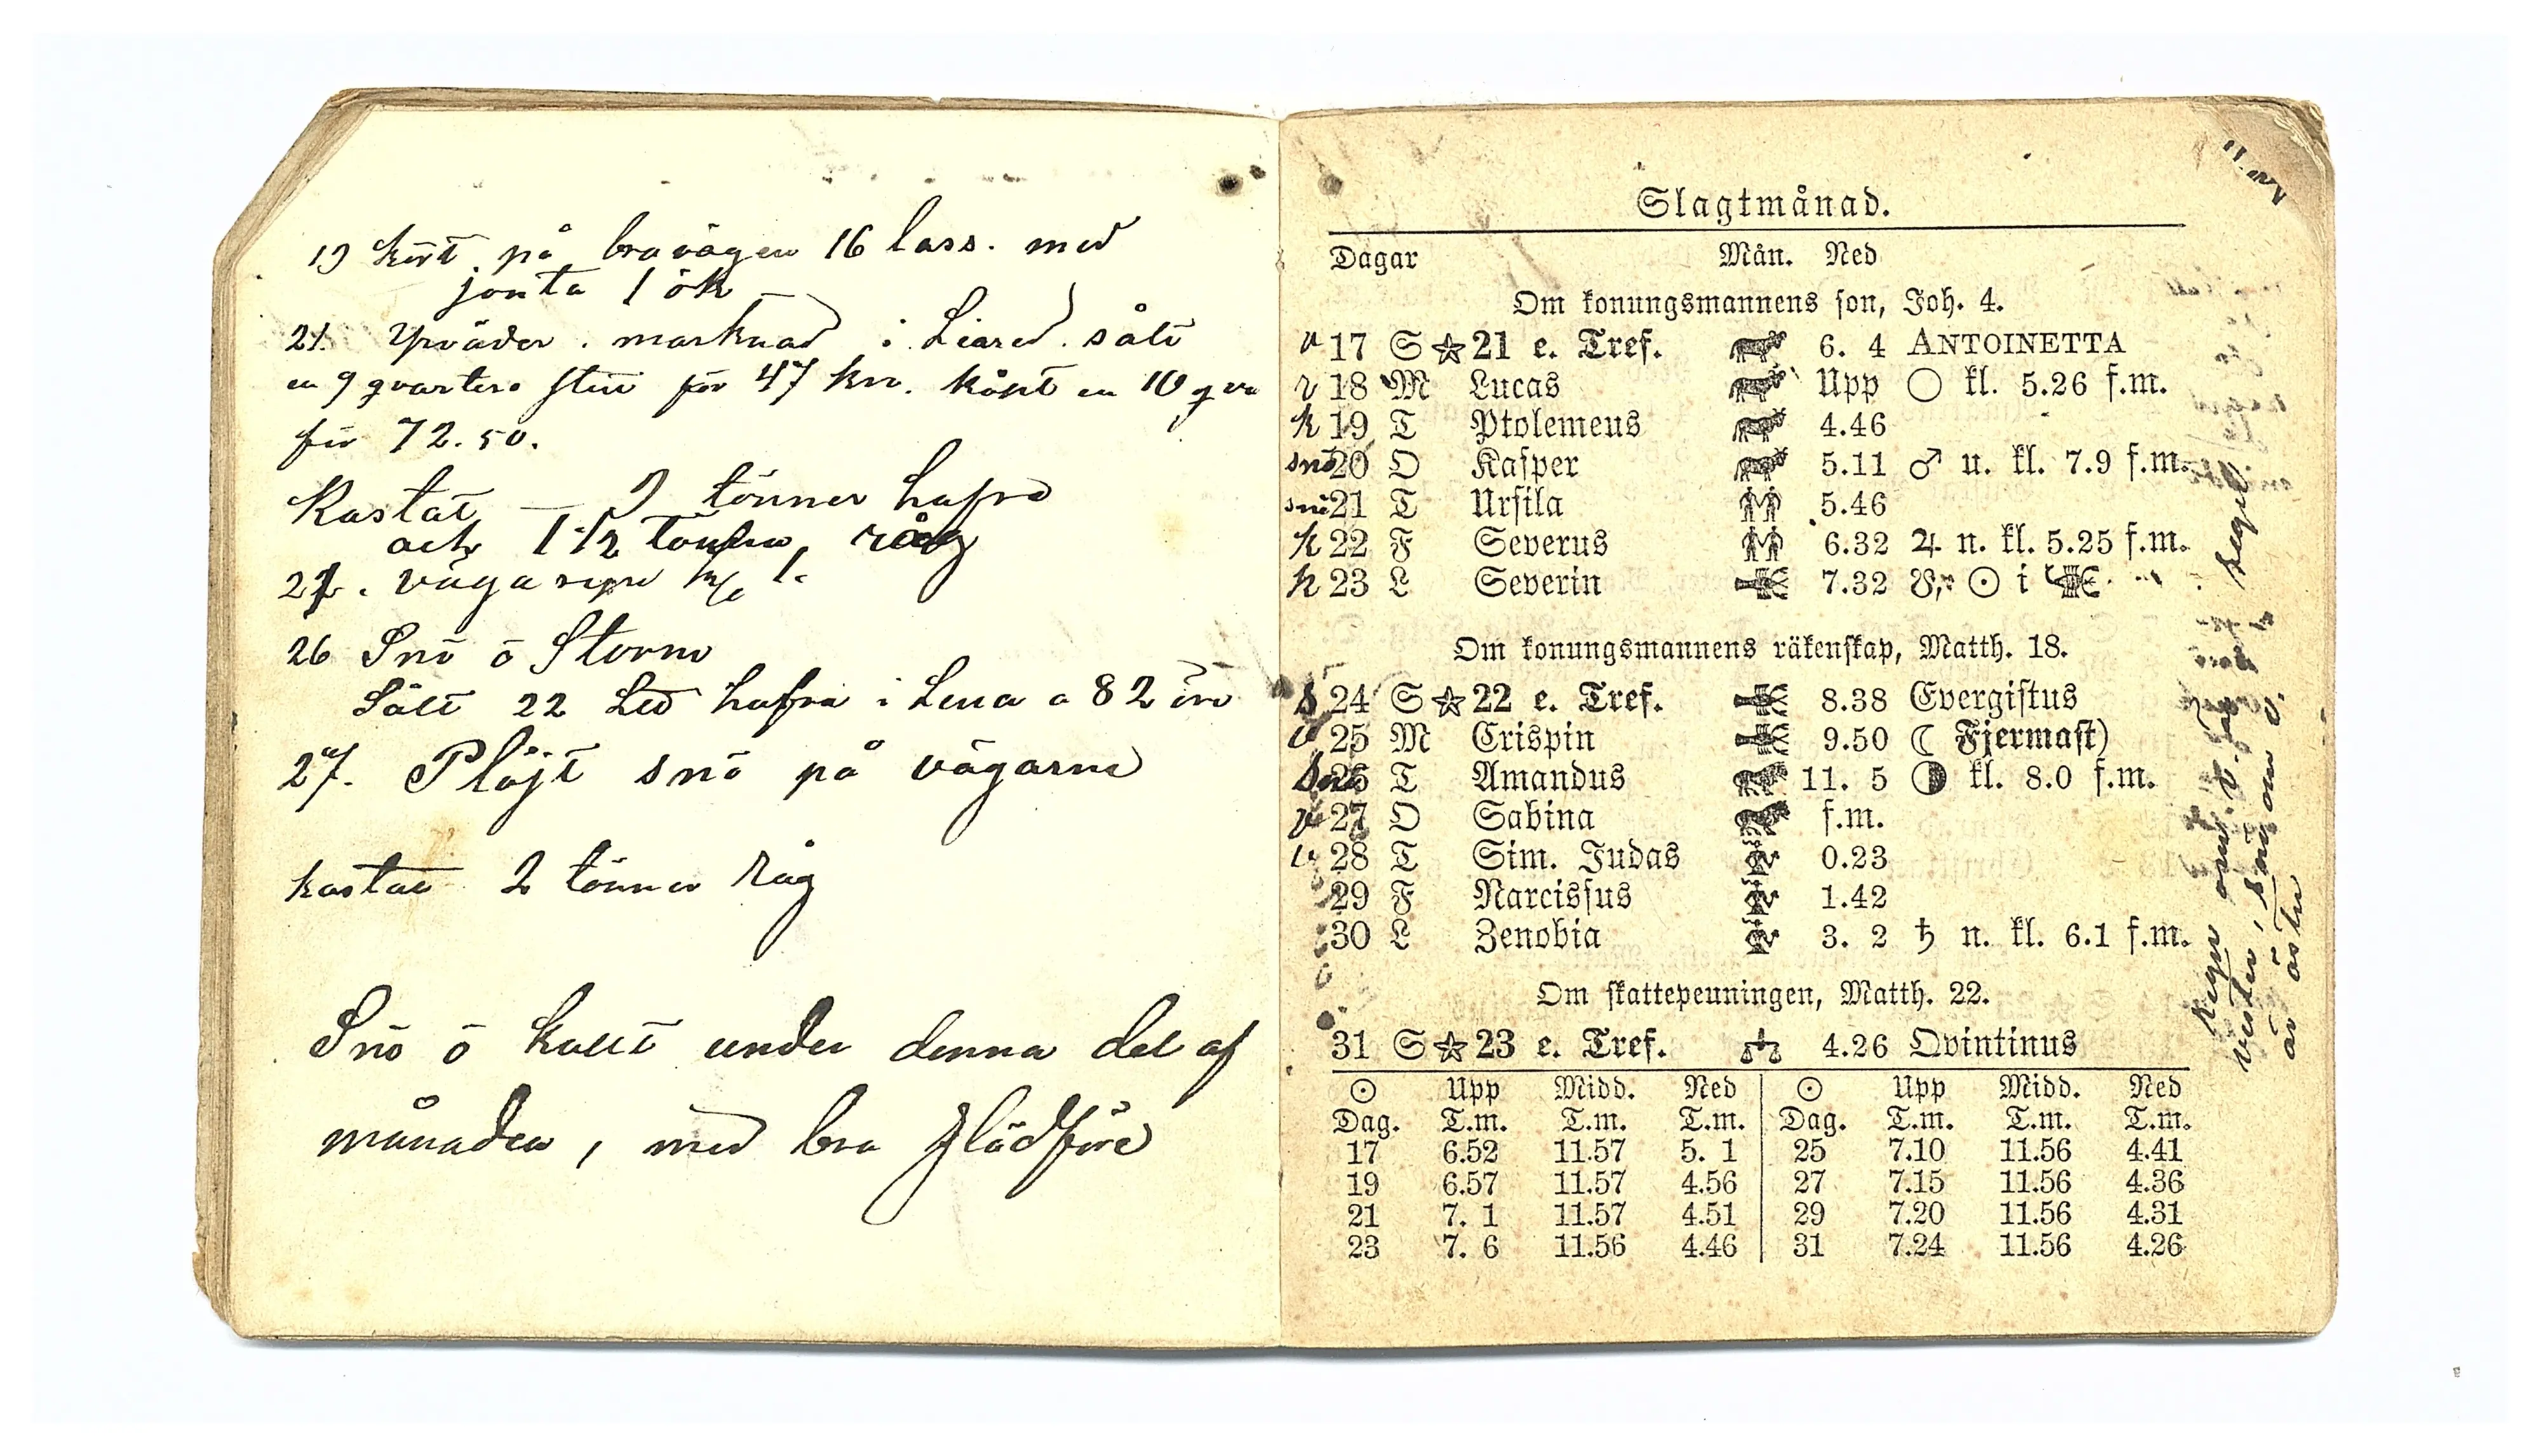 19 kört på bravägen 16 lass. med
jonta 1 ök
21. Yrväder. marknad i Liared. sålt
en 9 qvarters stut för 47 kr. köpt en 10 qva
för 72.50.
Kastat — 2 tönner hafra
och 1 1/2 råg
26 Snö ö Storm
Sålt 22 Led hafra i Lena a 82 öre
27. Plöjt snö på vägarne
kastat 2 tönner Råg
Snö ö kallt under denna del af
månaden, med bra slädföre
Slagtmånad.
Dagar Mån. Ned
Om konungsmannens son, Joh. 4.
v 17 S ☆ 21 e. Tref. 6. 4 ANTOINETTA
v 18 M Lucas Upp ○ kl. 5.26 f.m.
k 19 T Ptolemeus 4.46
snö 20 O Kasper 5.11 ♂ u. kl. 7.9 f.m.
snö 21 T Ursila 5.46
k 22 F Severus 6.32 ♃ n. kl. 5.25 f.m.
k 23 L Severin 7.32 ☉ i
Om konungsmannens räkenskap, Matth. 18.
S 24 S ☆ 22 e. Tref. 8.38 Evergistus
v 25 M Crispin 9.50 ☾ Fjermast)
Snö 26 T Amandus 11. 5 ◑ kl. 8.0 f.m.
v 27 O Sabina f.m.
v 28 T Sim. Judas 0.23
29 F Narcissus 1.42
30 L Zenobia 3. 2 ♄ n. kl. 6.1 f.m.
Om skattepenningen, Matth. 22.
31 S ☆ 23 e. Tref. 4.26 Qvintinus
☉ Upp Midd. Ned ☉ Upp Midd. Ned
Dag. T.m. T.m. T.m. Dag. T.m. T.m. T.m.
17 6.52 11.57 5. 1 25 7.10 11.56 4.41
19 6.57 11.57 4.56 27 7.15 11.56 4.36
21 7. 1 11.57 4.51 29 7.20 11.56 4.31
23 7. 6 11.56 4.46 31 7.24 11.56 4.26
Regn om v. är
vester, snö om v.
är öster